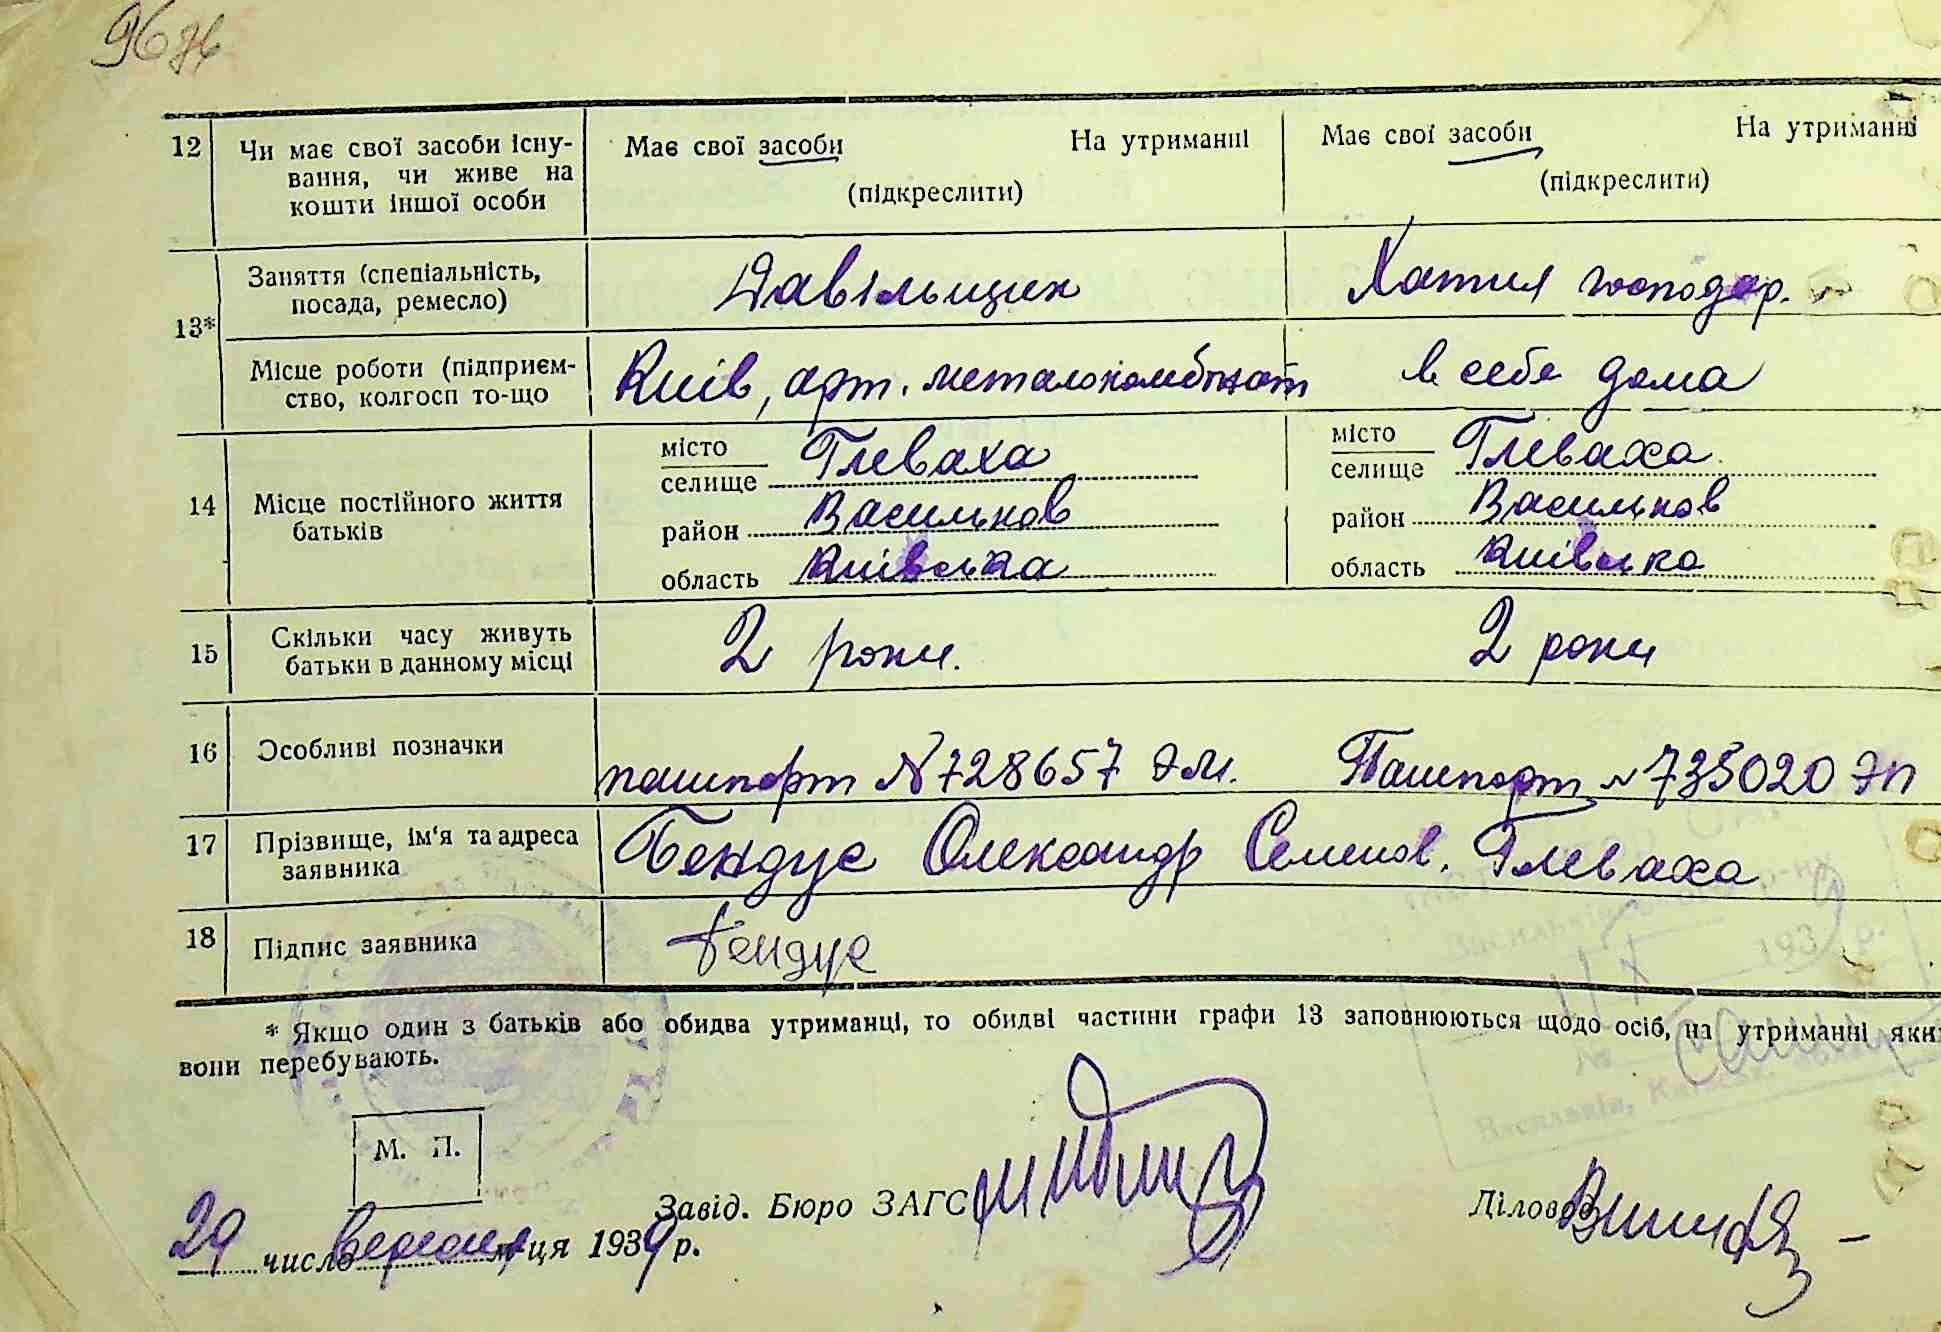 12 Чи має свої засоби існу-
вання, чи живе на
кошти іншої особи
Має свої засоби На утриманні
(підкреслити)
Має свої засоби На утриманні
(підкреслити)
13*
Заняття (спеціальність,
посада, ремесло)
Давільщик
Хатня господар.
Місце роботи (підприєм-
ство, колгосп то-що
Київ, арт. металокомбінат
в себе дома
14 Місце постійного життя
батьків
місто
селище Глеваха
район Васильков
область Київська
місто
селище Глеваха
район Васильков
область Київська
15 Скільки часу живуть
батьки в данному місці
2 роки.
2 роки
16 Особливі позначки
пашпорт N 728657 ЭМ.
Пашпорт N 735020 ЭП
17 Прізвище, ім'я та адреса
заявника
Бендус Олександр Семенов. Глеваха
18 Підпис заявника
Бендус
* Якщо один з батьків або обидва утриманці, то обидві частини графи 13 заповнюються щодо осіб, на утриманні яких
вони перебувають.
М. П.
Завід. Бюро ЗАГС
Діловод
29 число вересня м-ця 1939 р.